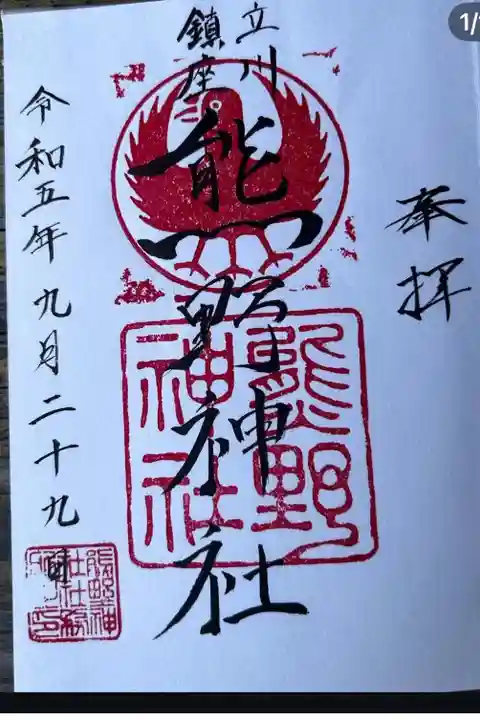 奉拝
立川
鎮座
熊野神社
熊野
神社
令和五年九月二十九日
熊野神
社社務
1/